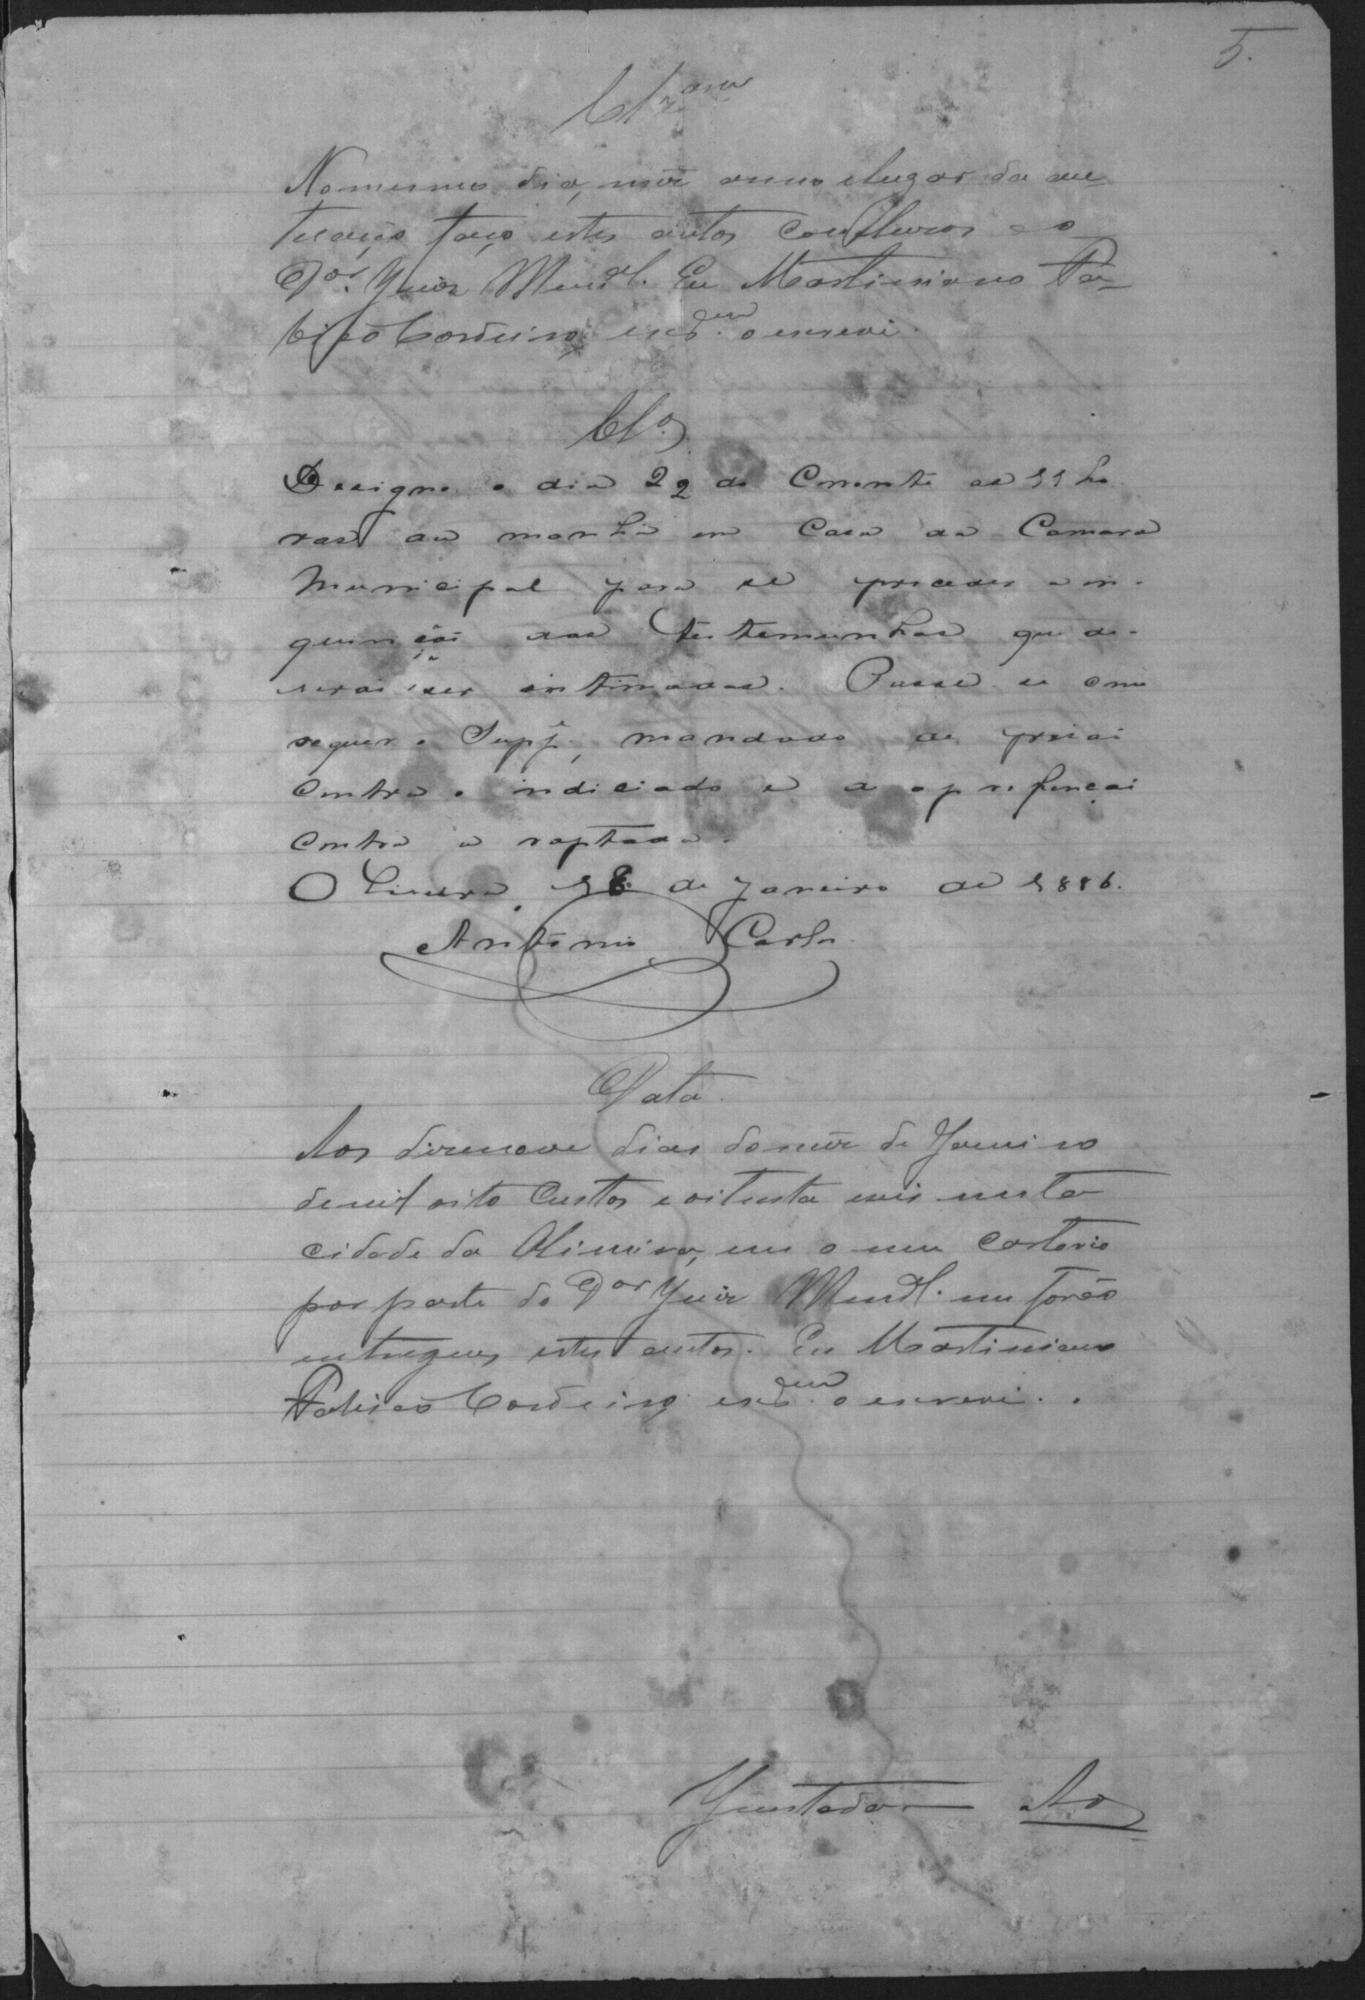 5.
Clz.am
No mesmo dia, mez anno e lugar da au-
tuação faço estes autos conclusos ao
Dor. Juiz Mun.al. Eu Martiniano Pa-
tricio Cordeiro, escr.am o escrevi.
Cls.
Designo o dia 22 do corrente as 11 ho
ras da manhã em Casa da Camara
Municipal para se proceder a in-
quirição das testemunhas que de-
verão ser intimadas. Passe se como
requer o Supp.e, mandado de prisão
contra o indiciado e a apprehenção
contra a raptada.
Oliveira, 18 de Janeiro de 1886.
Antonio Carlos
Data.
Aos dizenove dias do mez de Janeiro
de mil oito centos e oitenta seis nesta
cidade da Oliveira, em o meu cartorio
por parte do Dor Juiz Mun.al. me forão
entregues estes autos. Eu Martiniano
Patricio Cordeiro, escr.am o escrevi.
Juntada
Ao